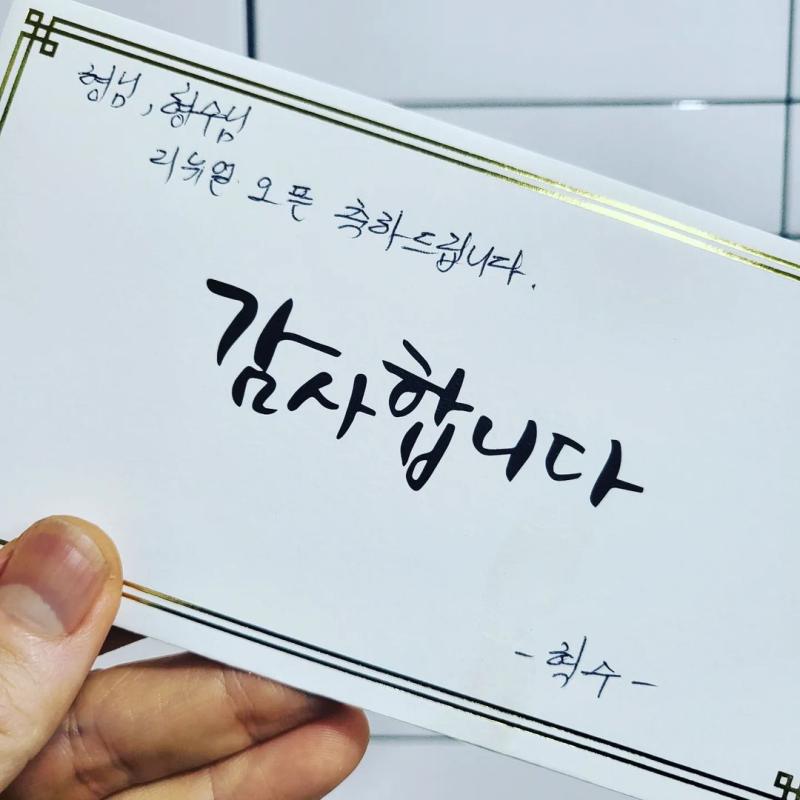 형님, 형수님
리뉴얼 오픈 축하드립니다.
감사합니다
- 혁수 -